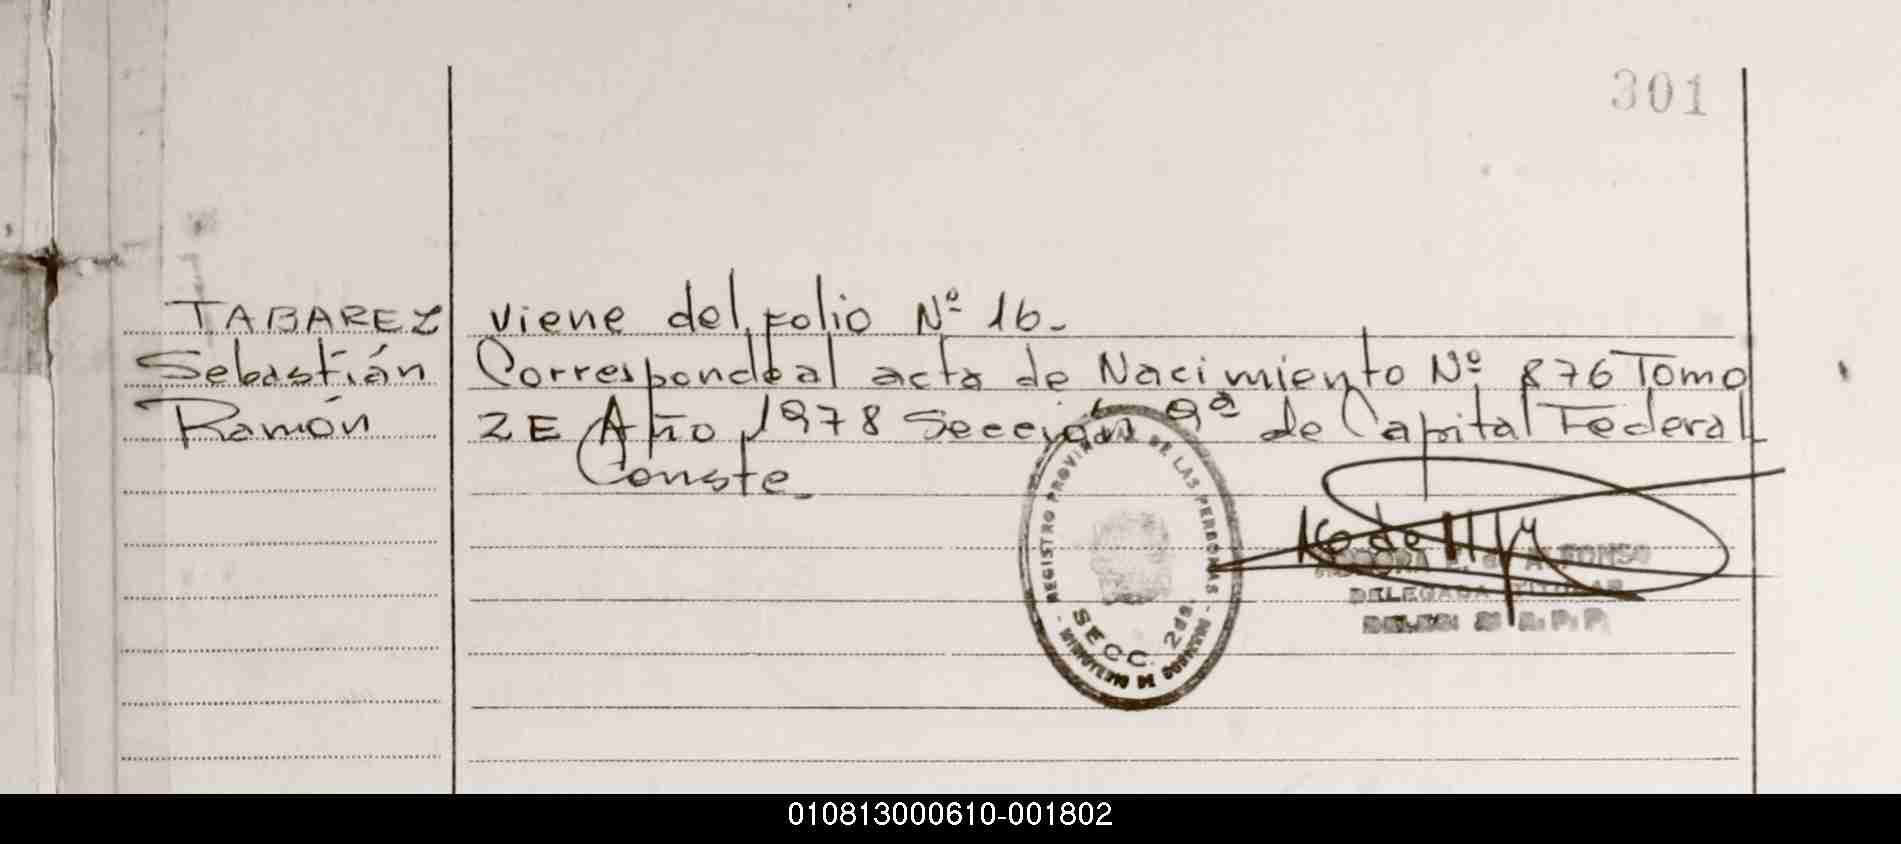 301
TABAREZ viene del folio Nº 16.
Sebastián Corresponde al acta de Nacimiento Nº 876 Tomo
Ramón 2E Año 1978 Sección 9ª de Capital Federal
Conste.
REGISTRO PROVINCIAL DE LAS PERSONAS
- MINISTERIO DE GOBIERNO -
SECC. 2da.
de ALFONSO
DELEGADA TITULAR
R.P.P.
010813000610-001802